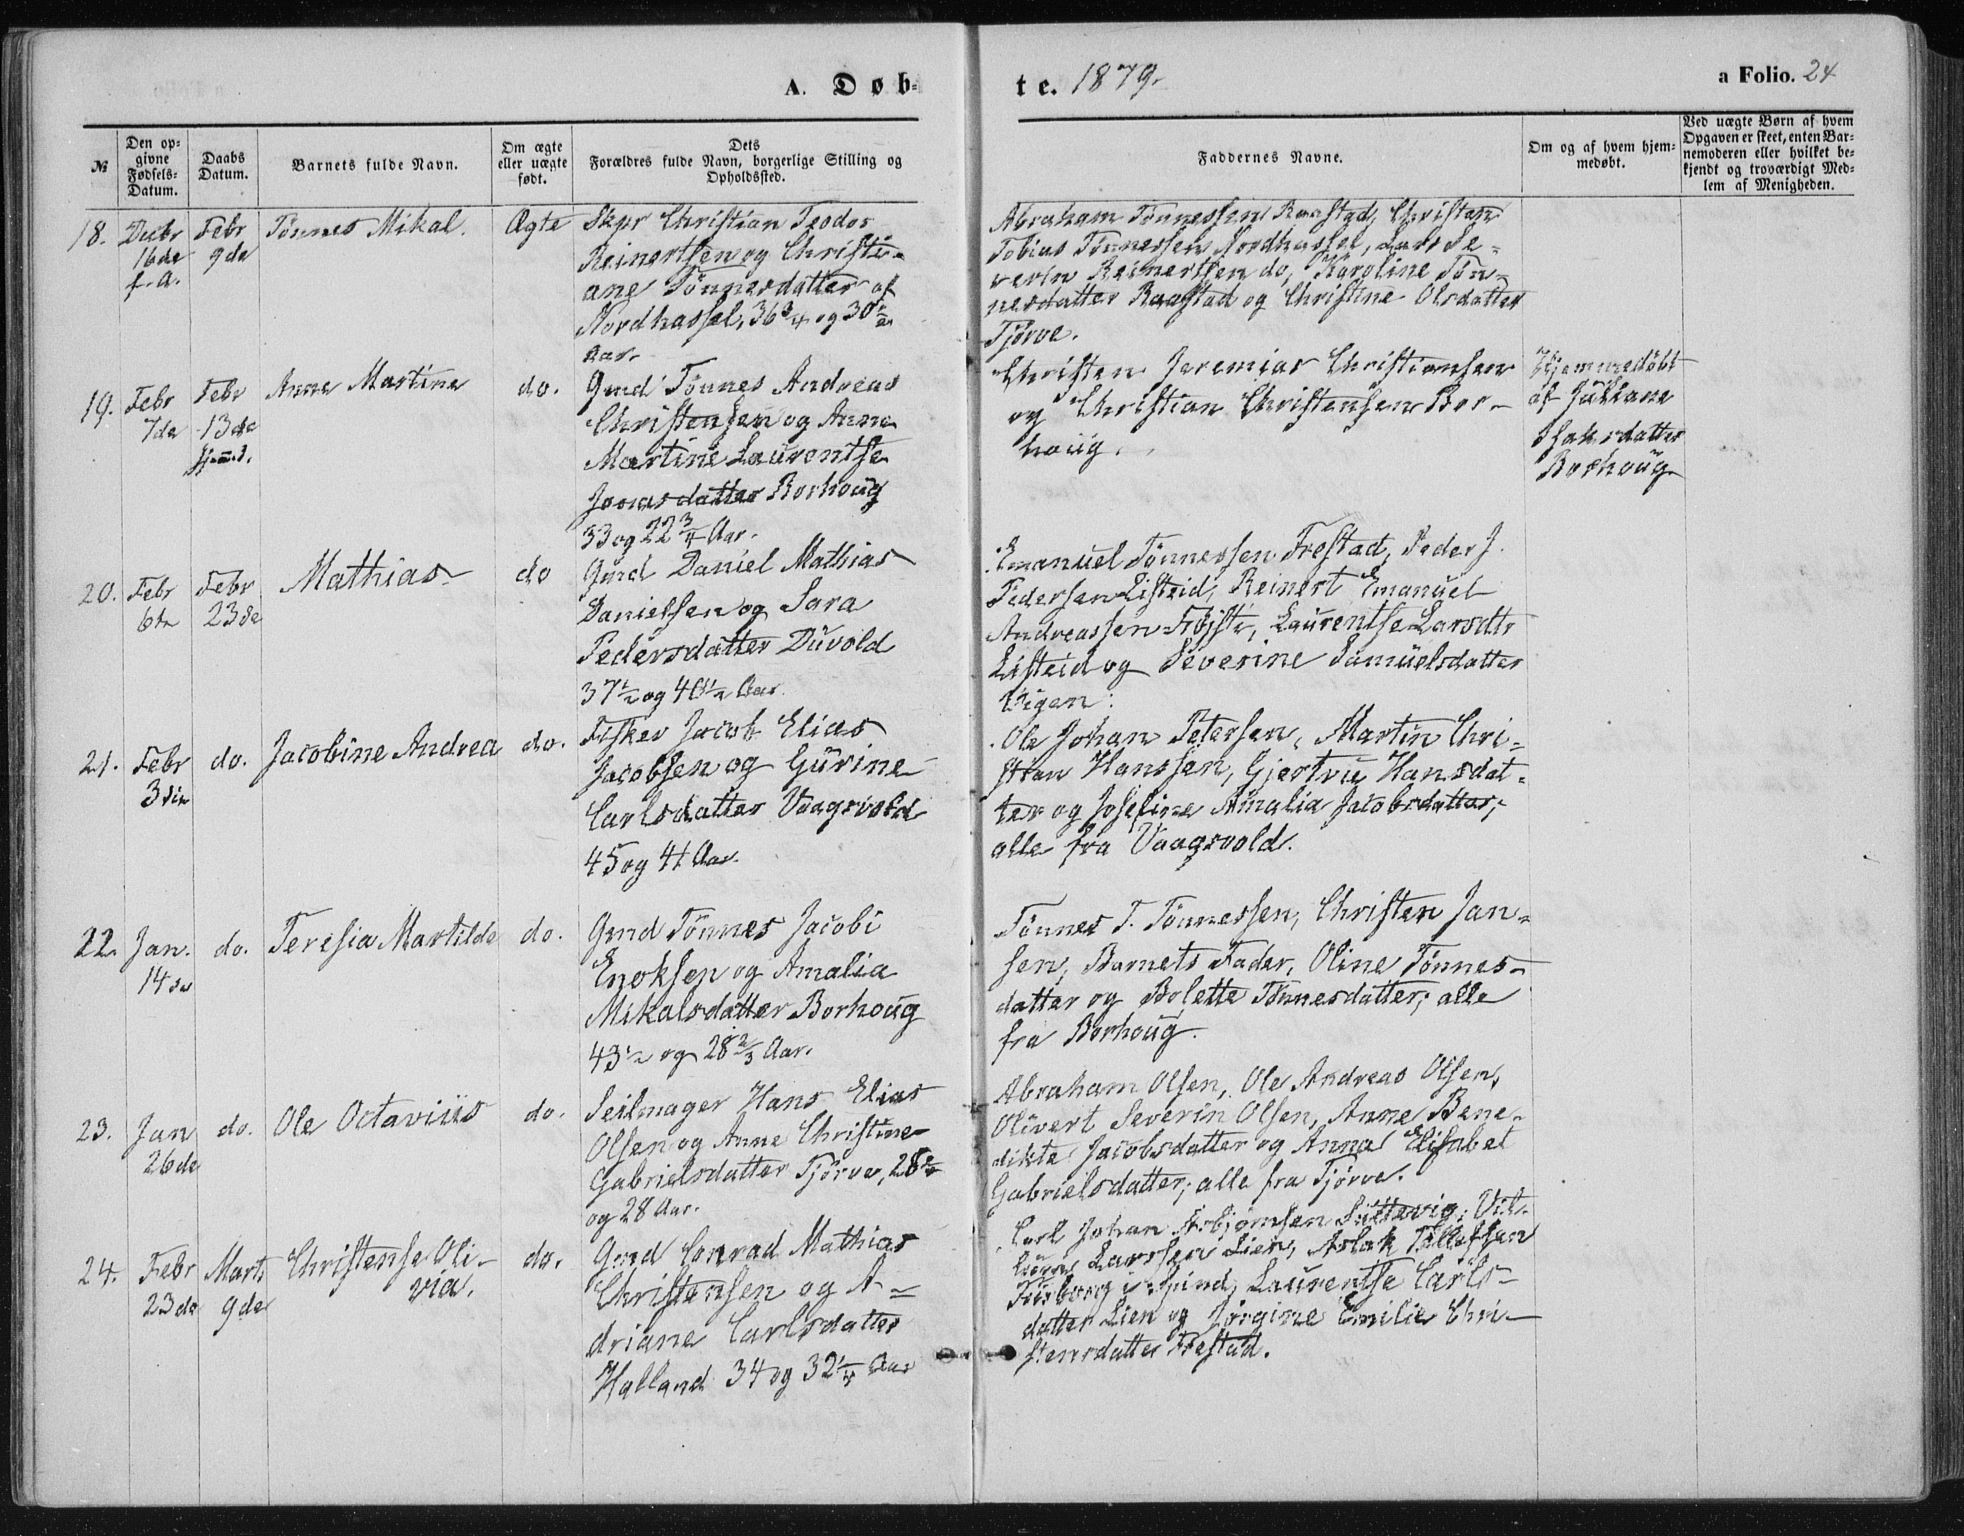 A. Døb-
te. 1879.
a Folio. 24
№
Den op-
givne
Fødsels-
Datum.
Daabs
Datum.
Barnets fulde Navn.
Om ægte
eller uægte
født.
Dets
Forældres fulde Navn, borgerlige Stilling og
Opholdssted.
Faddernes Navne.
Om og af hvem hjem-
medøbt.
Ved uægte Børn af hvem
Opgaven er skeet, enten Bar-
nemoderen eller hvilket be-
kjendt og troværdigt Med-
lem af Menigheden.
18.
Decbr
16de
f. A.
Febr
9de
Tönnes Mikal.
Ægte
Skpr Christian Teodor
Reinertsen og Christi-
ane Tönnesdatter af
Nordhassel, 36 3/4 og 30 1/2
Aar.
Abraham Tönnessen Raastad, Christen
Tobias Tönnessen Nordhassel, Lars Se-
verin Reinertsen do, Karoline Tön-
nesdatter Raastad og Christine Olsdatter
Tjörve.
19.
Febr
7de
Febr
13de
Anne Martine
do.
Gmd Tönnes Andreas
Christensen og Anne
Martine Laurentse
Jonasdatter Borhoug
33 og 22 3/4 Aar.
Christen Jeremias Christiansen
og Christian Christensen Bor-
houg.
Hjemmedöbt
af Juliane
Isaksdatter
Borhoug
20.
Febr
6te
Febr
23de
Mathias
do
Gmd Daniel Mathias
Danielsen og Sara
Pedersdatter Düvold
37 1/2 og 40 1/2 Aar.
Emanuel Tönnessen Frestad, Peder J.
Pedersen Listeid, Reinert Emanuel
Andreassen, Laurentse Larsdtr
Listeid og Severine Samuelsdatter
Vigen.
21.
Febr
3die
do.
Jacobine Andrea
do.
Fisker Jacob Elias
Jacobsen og Gurine
Carlsdatter Vaagsvold
45 og 41 Aar.
Ole Johan Petersen, Martin Chri-
stian Hanssen, Gjertrue Hansdat-
ter og Josefine Amalia Jacobsdatter,
alle fra Vaagsvold.
22.
Jan.
14de
do.
Teresia Martilde
do.
Gmd Tönnes Jacobi
Enoksen og Amalia
Mikalsdatter Borhoug
43 1/2 og 28 2/3 Aar.
Tönnes T. Tönnessen, Christen Jan-
sen, Barnets Fader, Oline Tönnes-
datter og Bolette Tönnesdatter, alle
fra Borhoug.
23.
Jan
26de
do.
Ole Octavius
do.
Seilmager Hans Elias
Olsen og Anne Christine
Gabrielsdatter Tjörve, 28
og 28 Aar.
Abraham Olsen, Ole Andreas Olsen,
Olivert Severin Olsen, Anne Bene-
dikte Jacobsdatter og Anna Elisabet
Gabrielsdatter, alle fra Tjörve.
24.
Febr
23de
Marts
9de
Christense Oli-
via.
do.
Gmd Conrad Mathias
Christensen og A-
driane Carlsdatter
Halland 34 og 32 1/4 Aar
Carl Johan Asbjörnsen
Larssen Lien, Aslak Tollefsen
i Spind, Laurentse Carls-
datter Lien og Jörgine Emilie Chri-
stensdatter Frestad.